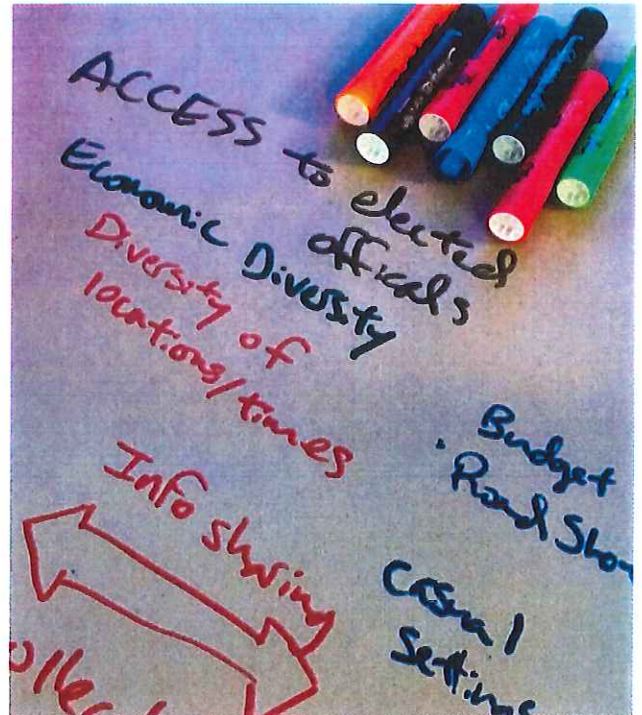 ACCESS to elected
officals
Economic Diversity
Diversity of
locations/times
Info sharing
Budget
Road Sho
Casual
Settings
ollec